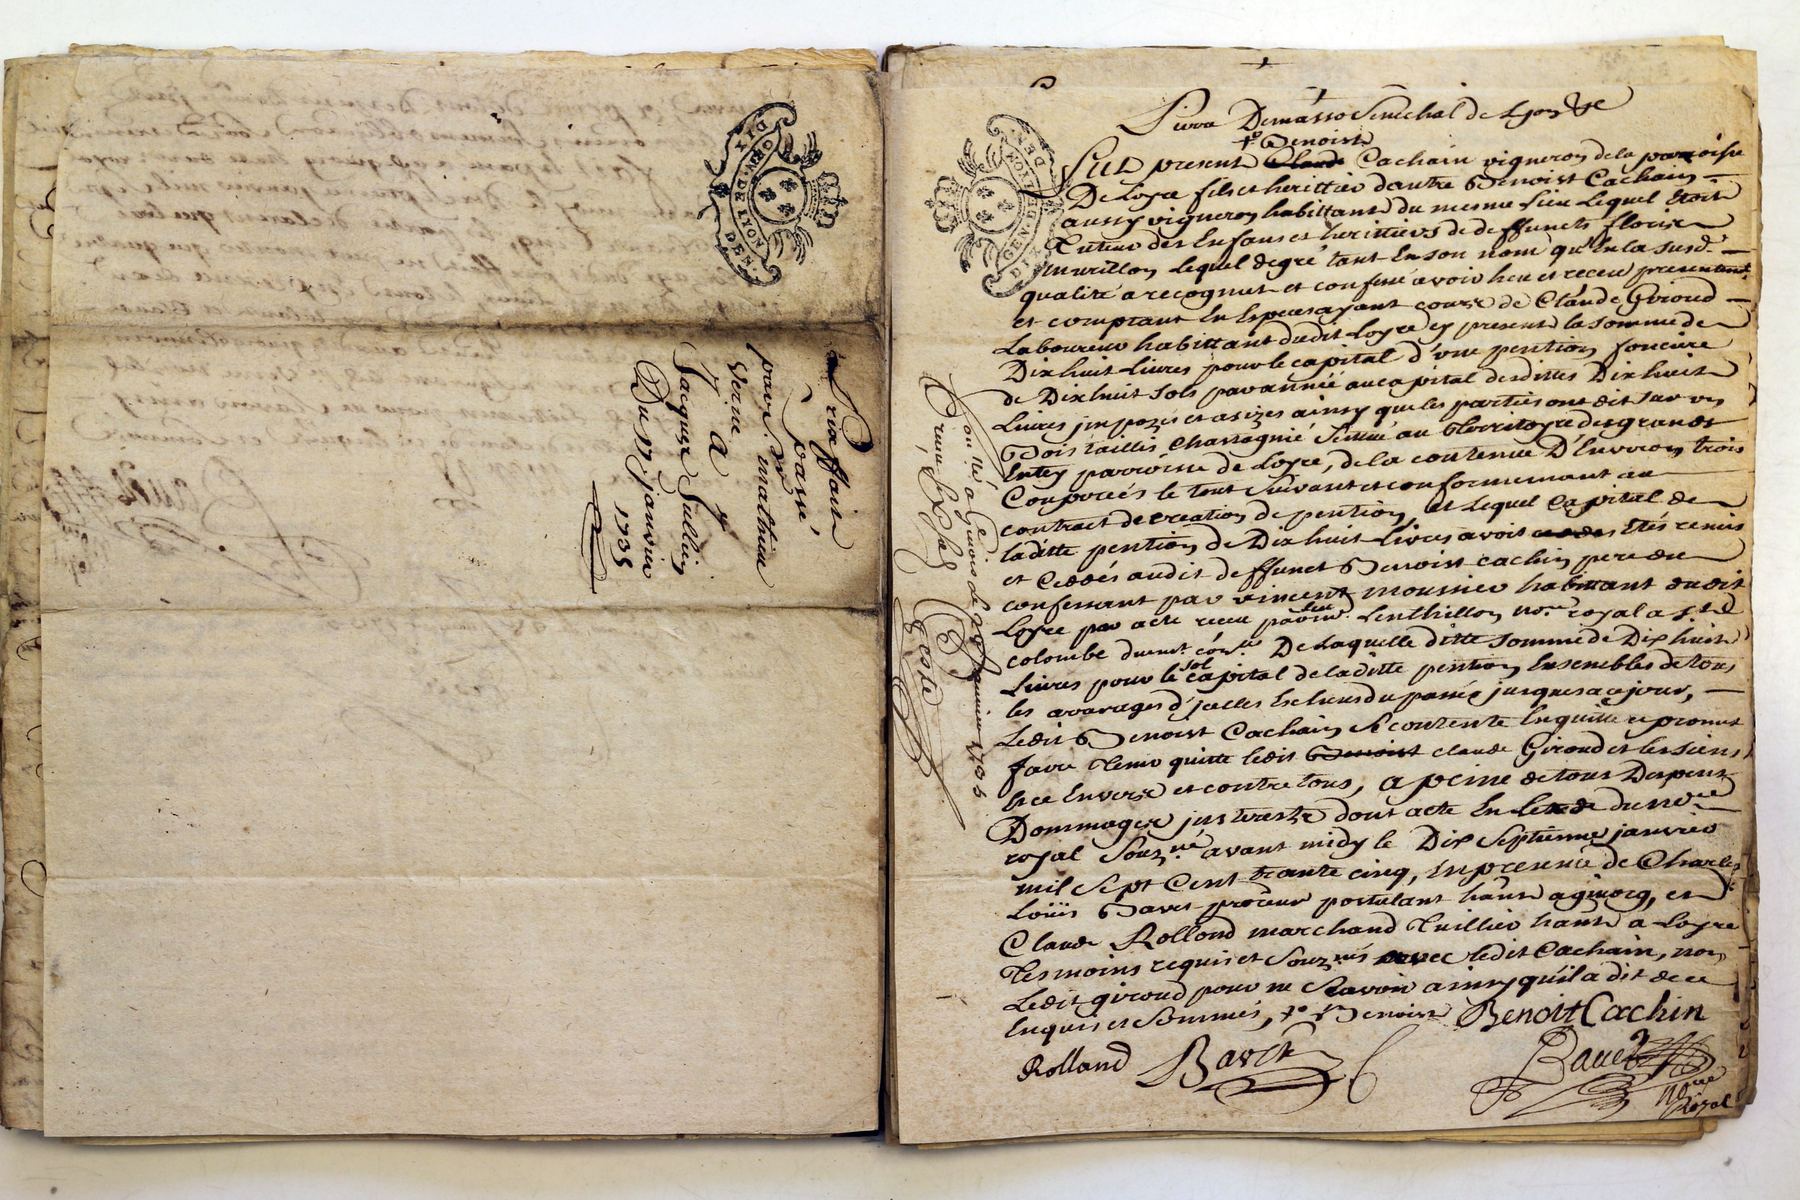 DIX DEN.
GEN. DE LYON
ratiffaon
passé
par mre mathieu
Verne
a
Jacques Jullien
Du 17 janvier
1735
GEN. DE LYON
DIX DEN.
Demasso Senechal de Lyon &e
Benoist
Fut present Claude Cachain vigneron de la parroisse
De Loyre fils et herittier d'autre Benoist Cachain
aussy vigneron habittant du mesme lieu Lequel Etoit
Tuteur des Enfans et herittiers de deffunct
Murillon Lequel degré tant En son nom qu'En la susd.
qualité a recognu et confessé avoir heu et receu presentemt
et comptant En Especes ayant cours de Claude Giroud
Laboureur habittant dudit Loyre cy present la somme de
Dix huit Livres pour le capital d'une pention fonciere
de Dix huit sols par année au capital desdittes Dix huit
Livres jmpozés et asizes ainsy que les parties ont dit sur un
Bois taillis Chastagnié Scittué au Territoyre des grandes
parroisse de Loyre, de la contenue D'Environ trois
Couporées le tout Suivant et conformemant au
contract de creation de pention, et Lequel Capital de
laditte pention de Dix huit Livres avoit Etés remis
et Ceddés audit deffunct Benoist cachin pere du
confessant par vincent mousnier habittant dudit
Loyre par acte receu par me Lenthillon nore royal a ste
colombe De Laquelle ditte somme de Dix huit
Livres pour le capital de laditte pention Ensembles de tous
les arrarages d'jcelles Escheus du passé jusques a ce jour,
Ledit Benoist Cachain se contente En quitte et promet
faire Tenir quitte ledit Benoist claude Giroud et les siens
Ece Envers et contre tous, a peine de tous Despens
Dommages jnterests dont acte dudit nore
royal Souzné avant midy le Dix Septieme janvier
mil Sept Cent trante cinq, En presence de Charles
Loüis Bavet proceur postulant hânt a givorg, et
Claude Rolland marchand Tuillier hânt a Loyre
Tesmoins requis et Souznés avec ledit Cachain, non
Ledit giroud pour ne Scavoir ainsy qu'il a dit de ce
Enquis et Sommés, Benoist
Benoit Cachin
Rolland
Bavet
Bavet
nore
Royal
Conllé a givors le janvier 1735